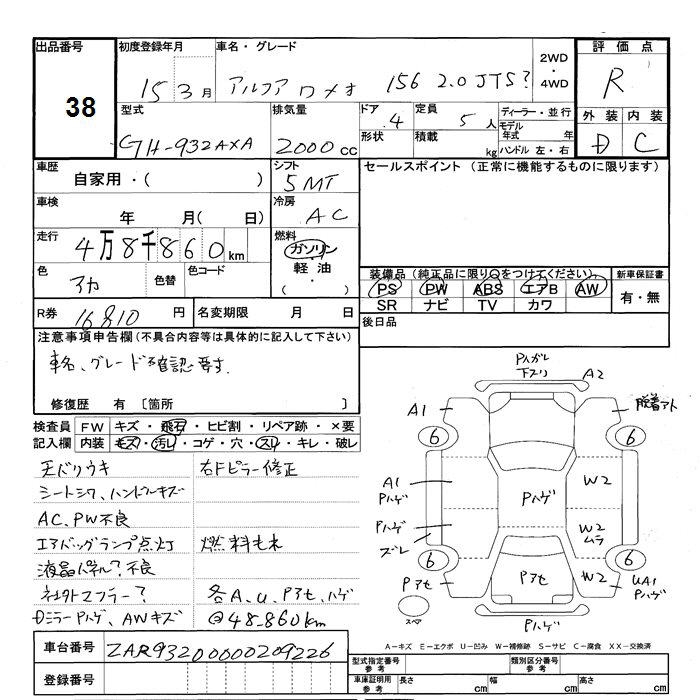 出品番号
38
初度登録年月
15 3月
車名・グレード
アルファ ロメオ 156 2.0 JTS?
2WD
・
4WD
評価点
R
型式
GH-932AXA
排気量
2000cc
ドア
4
形状
定員
5人
積載
kg
ディーラー・並行
モデル年式 年
ハンドル 左・右
外装
D
内装
C
車歴
自家用・( )
シフト
5MT
セールスポイント (正常に機能するものに限ります)
車検
年 月( 日)
冷房
AC
走行
4万8千860km
燃料
ガソリン
軽油
( ・ )
色
アカ
色替
色コード
装備品 (純正品に限り○をつけてください)
PS PW ABS エアB AW
SR ナビ TV カワ
新車保証書
有・無
R券
16810 円
名変期限 月 日
後日品
注意事項申告欄 (不具合内容等は具体的に記入して下さい)
車名、グレード確認要す.
修復歴 有 〔箇所 〕
検査員記入欄
FW キズ・飛石・ヒビ割・リペア跡・×要
内装 キズ・汚レ・コゲ・穴・スレ・キレ・破レ
天バリウキ
シートシワ、ハンドルキズ
AC、PW不良
エアバッグランプ点灯
液晶パネル?不良
社外マフラー?
Dミラー Pハゲ、AWキズ
右Fピラー修正
燃料もれ
各A、U、Pアセ、ハゲ
@48.860km
車台番号
ZAR93200000209226
登録番号
Pハガレ
下スリ
A2
A1
脱着アト
6
6
A1
Pハゲ
Pハゲ
W2
Pハゲ
ズレ
W2
ムラ
6
6
Pアセ
Pアセ
W2
UA1
Pハゲ
スペア
Pハゲ
A－キズ E－エクボ U－凹み W－補修跡 S－サビ C－腐食 XX－交換済
型式指定番号
参考
類別区分番号
参考
車庫証明用
参考
長さ cm
幅 cm
高さ cm